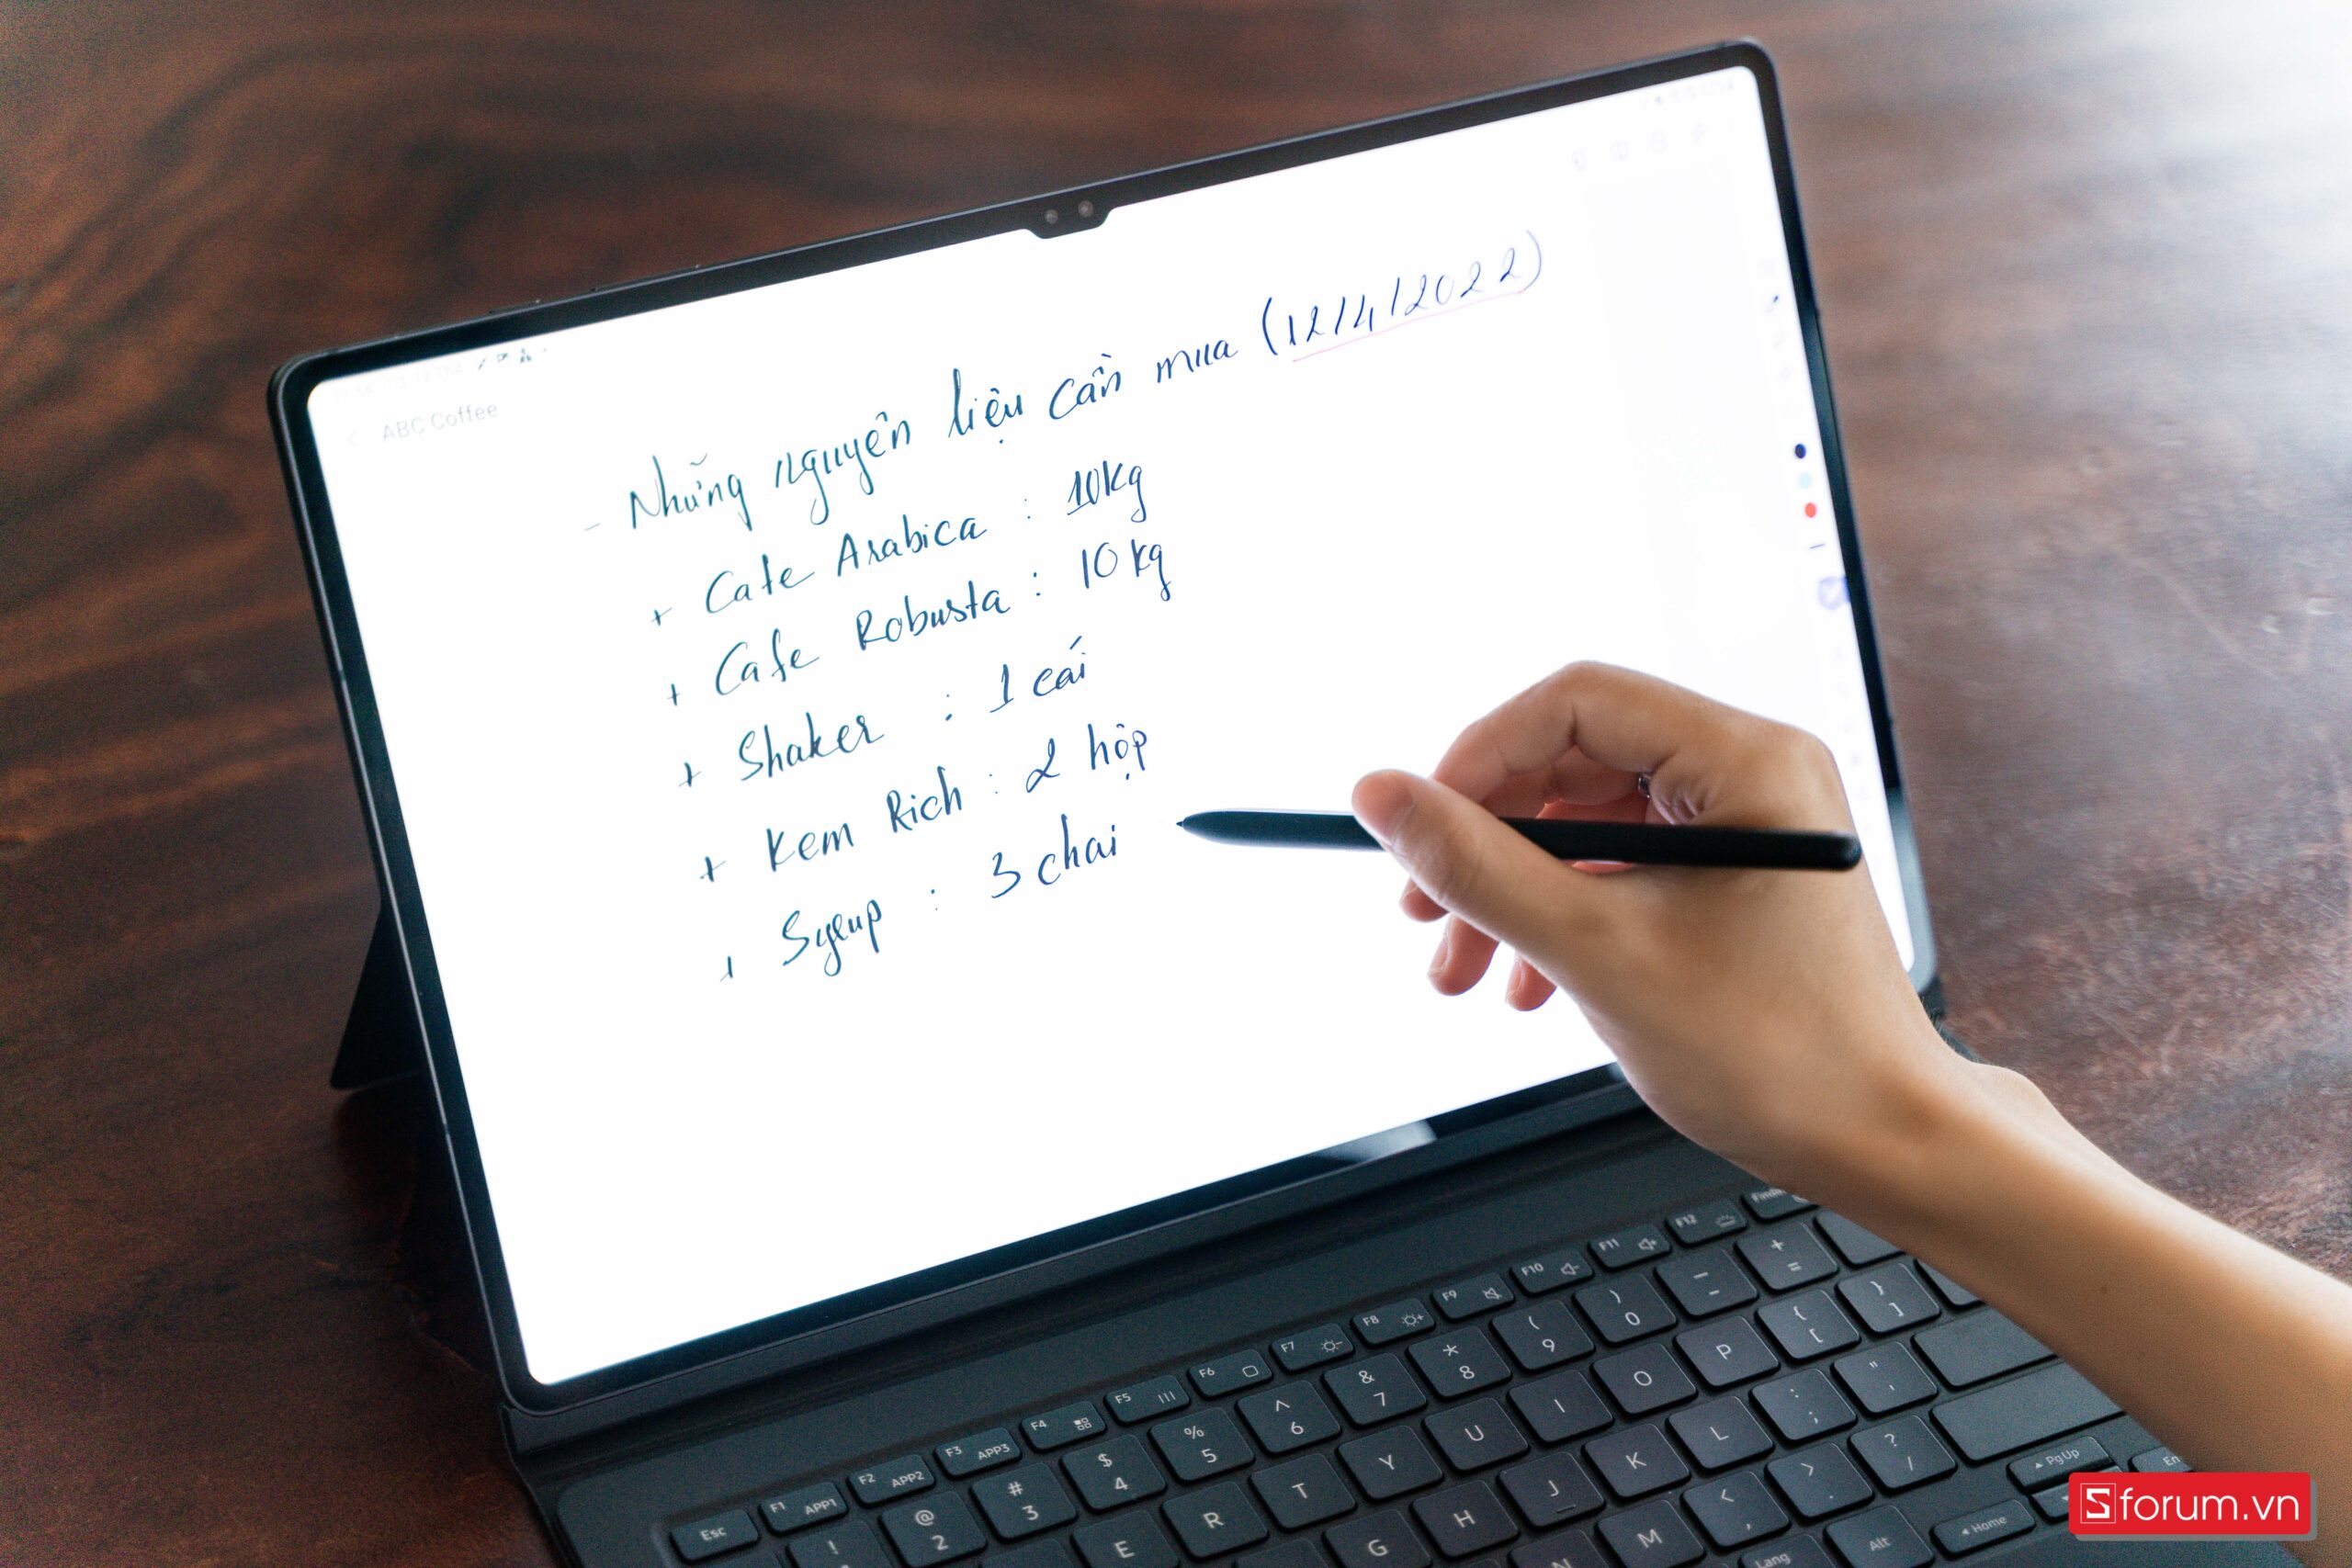 ABC Coffee
- Những nguyên liệu cần mua (12/4/2022)
+ Cafe Arabica : 10kg
+ Cafe Robusta : 10kg
+ Shaker : 1 cái
+ Kem Rich : 2 hộp
+ Syrup : 3 chai
Esc F1 APP1 F2 APP2 F3 APP3 F4 F5 F6 F7 F8 F9 F10 F11 F12
! @ 2 # 3 $ 4 % 5 ^ 6 & 7 * 8 ( 9 ) 0 _ - + =
E R T Y U I O P { [ } ]
G H J K L : ; " '
N M < , > . ? / PgUp
Lang Alt Home
Sforum.vn